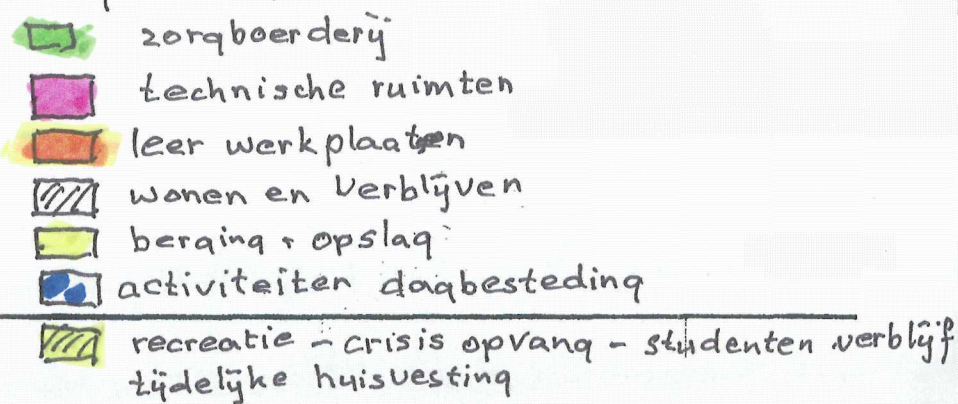 zorgboerderij
technische ruimten
leer werkplaatsen
wonen en verblijven
berging + opslag
activiteiten dagbesteding
recreatie - crisis opvang - studenten verblijf
tijdelijke huisvesting